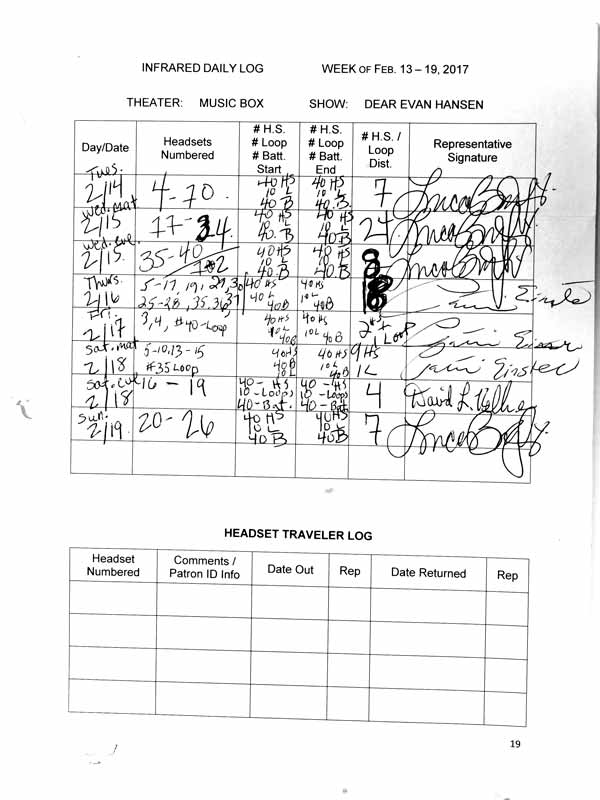 INFRARED DAILY LOG WEEK OF FEB. 13 – 19, 2017
THEATER: MUSIC BOX SHOW: DEAR EVAN HANSEN
Day/Date Headsets Numbered # H.S. # Loop # Batt. Start # H.S. # Loop # Batt. End # H.S. / Loop Dist. Representative Signature
Tues. 2/14 4-70 40 HS 10 L 40 B 40 HS 10 L 40 B 7
Wed. mat 2/15 40 HS 10 L 40 B 40 HS 10 L 40 B 24
Wed. eve. 2/15 35-40 40 HS 10 L 40 B 40 HS 10 L 40 B 8
Thurs. 2/16 5-17, 19, 25-28, 35, 36, 37 40 HS 40 L 40 B 40 HS 10 L 40 B 18
Fri. 2/17 3, 4, #40-Loop 40 HS 10 L 40 B 40 HS 10 L 40 B 2 HS + 1 Loop
Sat. mat 2/18 5-10, 13-15 #35 Loop 40 HS 10 L 40 B 40 HS 10 L 40 B 9 HS 1 L
Sat. eve 2/18 16 - 19 40 - HS 10 - Loops 40 - Bat. 40 - HS 10 - Loops 40 - Bat. 4 David L.
Sun. 2/19 20 - 26 40 HS 10 L 40 B 40 HS 10 L 40 B 7
HEADSET TRAVELER LOG
Headset Numbered Comments / Patron ID Info Date Out Rep Date Returned Rep
19